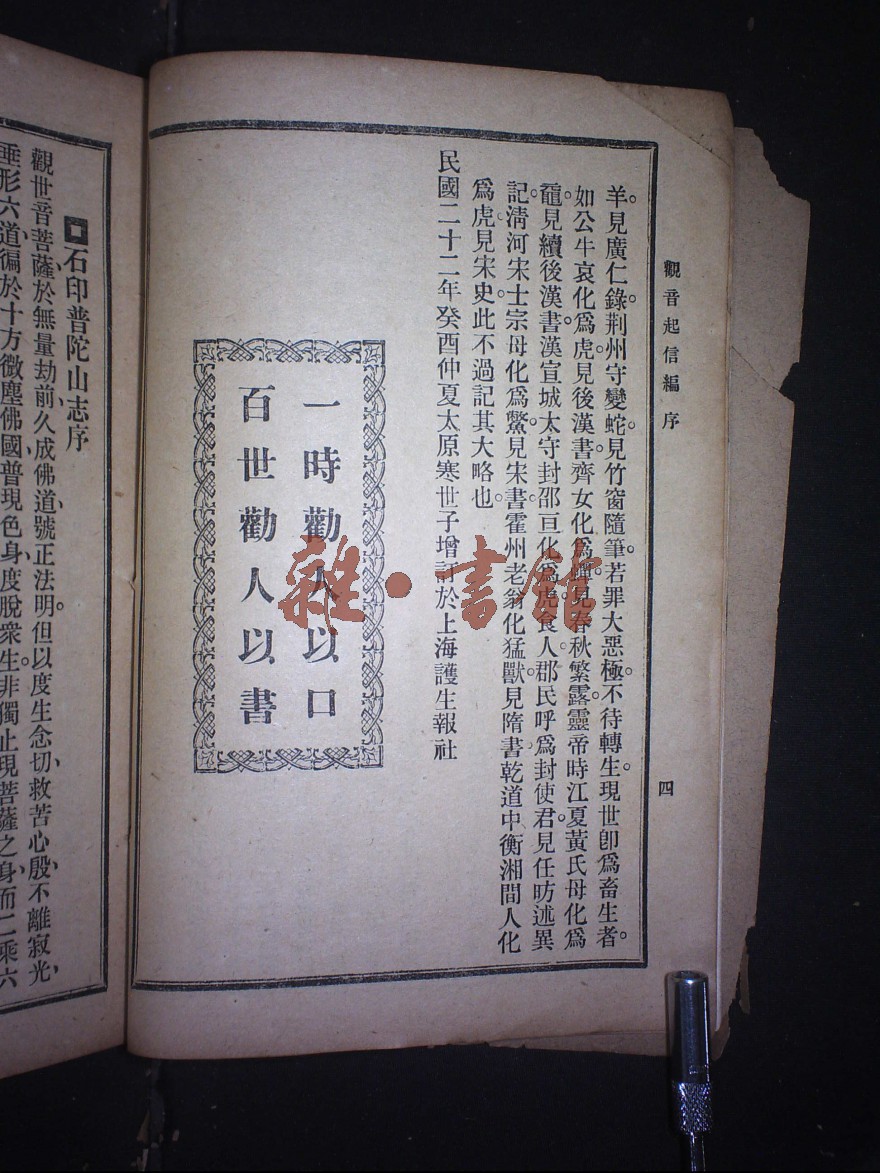 觀音起信編 序
四
羊見廣仁錄。荆州守變蛇。見竹窗隨筆。若罪大惡極。不待轉生。現世卽爲畜生者。
如公牛哀化爲虎。見後漢書。齊女化爲蟬。見春秋繁露。靈帝時江夏黃氏母化爲
黿。見續後漢書。漢宣城太守封邵亘化爲虎食人。郡民呼爲封使君。見任昉述異
記。淸河宋士宗母化爲鱉。見宋書。霍州老翁化猛獸。見隋書。乾道中衡湘間人化
爲虎。見宋史。此不過記其大略也。
民國二十二年癸酉仲夏太原寒世子增訂於上海護生報社
一時勸人以口
百世勸人以書
石印普陀山志序
觀世音菩薩於無量劫前久成佛道、號正法明。但以度生念切、救苦心殷、不離寂光、
垂形六道、徧於十方微塵佛國、普現色身、度脫衆生。非獨止現菩薩之身、而二乘六
雜·書館